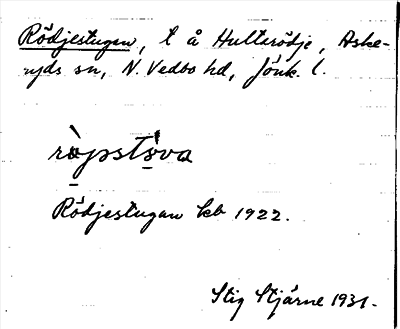 Rödjestugan, t å Hultsrödje, Aske-
ryds sn, N. Vedbo hd, Jönk. l.
Rödjestugan kb 1922.
Stig Stjärne 1931.